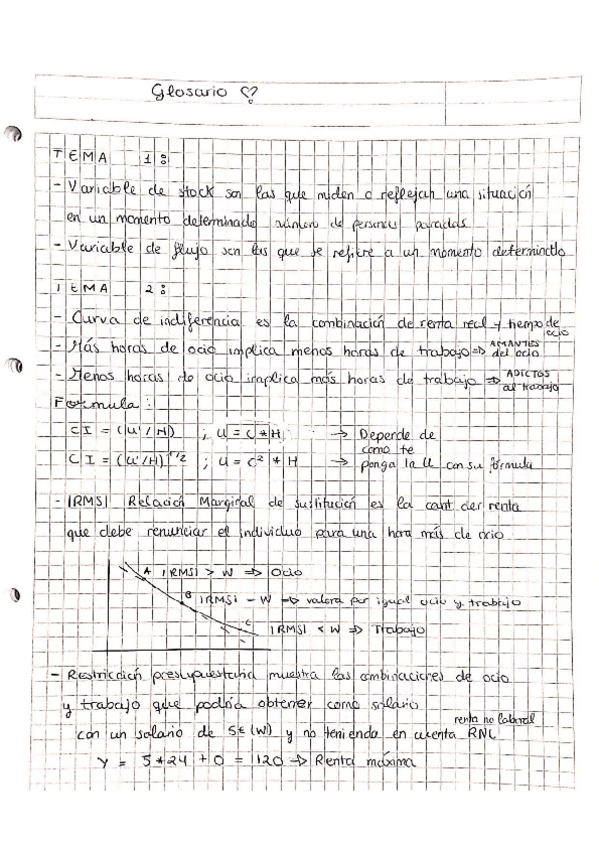 Glosario
TEMA 1:
- Variable de stock son las que miden o reflejan una situación
en un momento determinado número de personas paradas
- Variable de flujo son las que se refiere a un momento determindo
TEMA 2:
- Curva de indiferencia es la combinación de renta real y tiempo de ocio
- Más horas de ocio implica menos horas de trabajo => AMANTES del ocio
- Menos horas de ocio implica más horas de trabajo => ADICTOS al trabajo
Formula:
CI = (U'/H) ; U = C * H → Depende de
como te
CI = (U'/H)^1/2 ; U = C² * H → ponga la U con su fórmula
- |RMS| Relación Marginal de sustitución es la cant der renta
que debe renunciar el individuo para una hora más de ocio
A |RMS| > W => Ocio
B |RMS| = W => valora por igual ocio y trabajo
C |RMS| < W => Trabajo
- Restricción presupuestaria muestra las combinaciones de ocio
y trabajo que podría obtener como salario
renta no laboral
con un salario de 5€ (W) y no teniendo en cuenta RNL
Y = 5 * 24 + 0 = 120 → Renta máxima